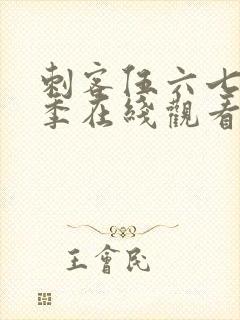 刺客伍六七
季在綫觀看
王會民